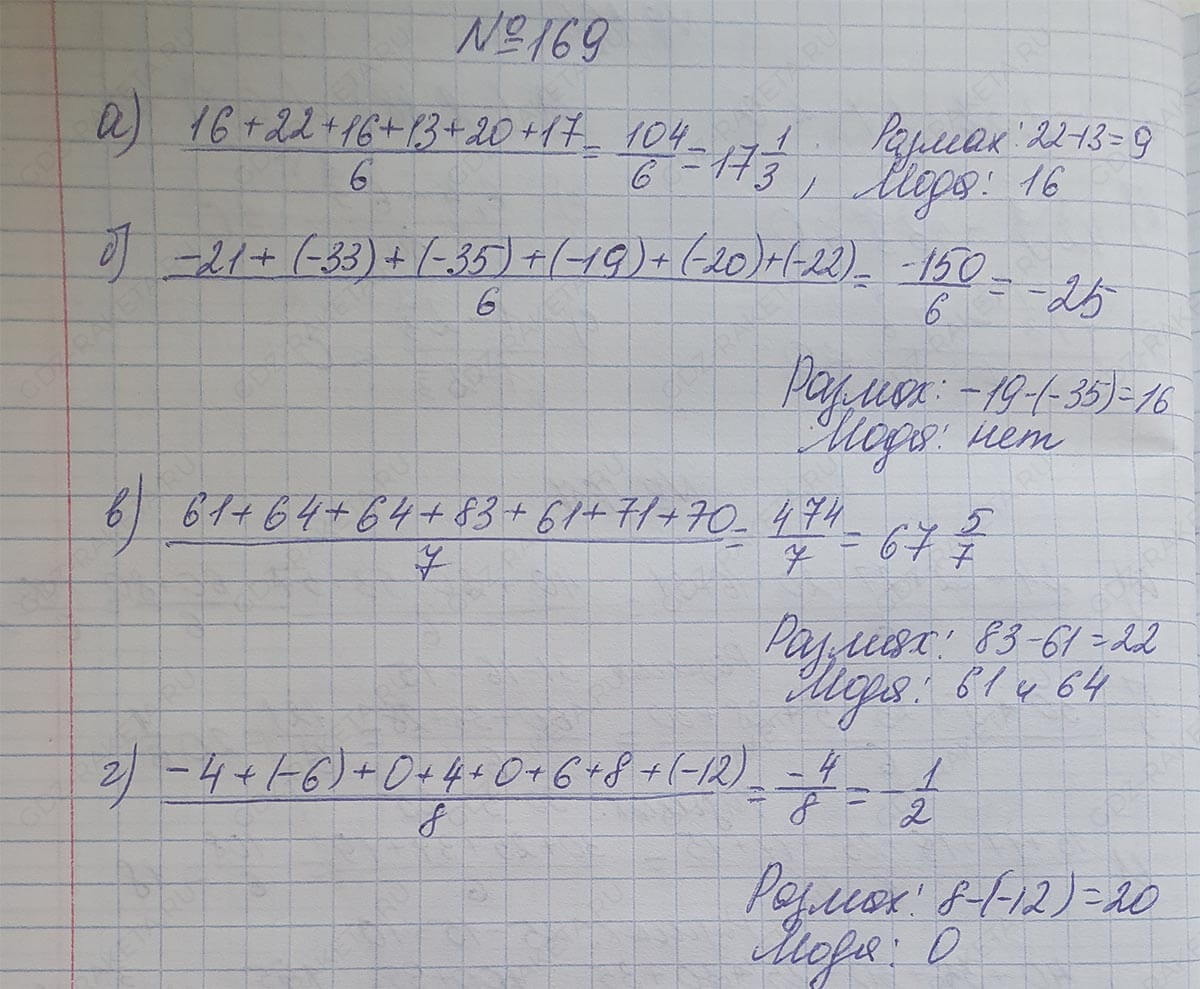 №169
а) (16+22+16+13+20+17)/6 = 104/6 = 17 1/3; Размах: 22-13=9
Мода: 16
б) (-21+(-33)+(-35)+(-19)+(-20)+(-22))/6 = -150/6 = -25
Размах: -19-(-35)=16
Мода: нет
в) (61+64+64+83+61+71+70)/7 = 474/7 = 67 5/7
Размах: 83-61=22
Мода: 61 и 64
г) (-4+(-6)+0+4+0+6+8+(-12))/8 = -4/8 = -1/2
Размах: 8-(-12)=20
Мода: 0